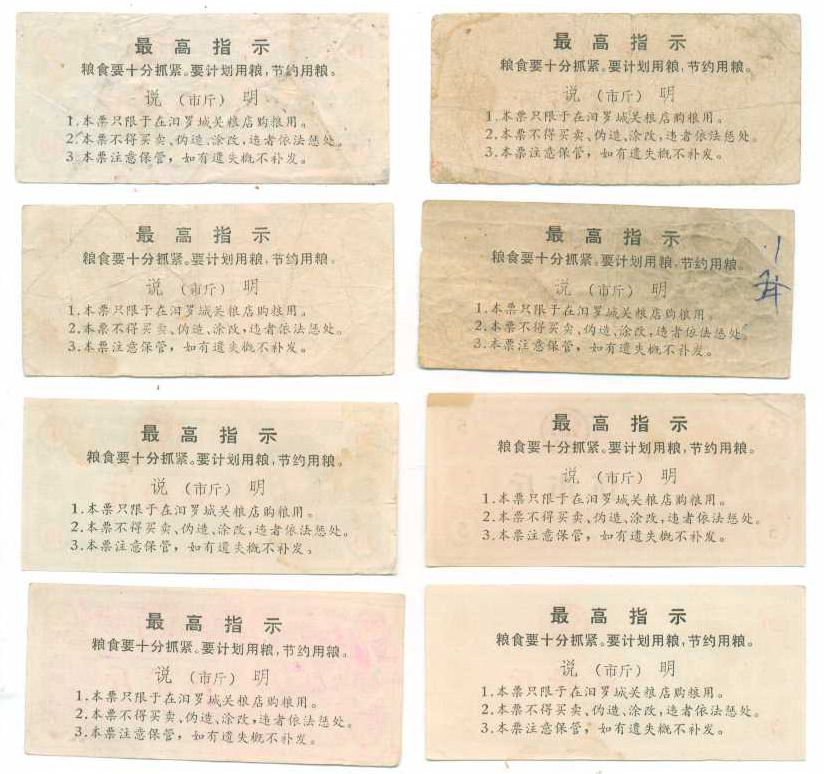 最高指示
粮食要十分抓紧。要计划用粮,节约用粮。
说(市斤)明
1.本票只限于在汨罗城关粮店购粮用。
2.本票不得买卖、伪造、涂改,违者依法惩处。
3.本票注意保管,如有遗失概不补发。
最高指示
粮食要十分抓紧。要计划用粮,节约用粮。
说(市斤)明
1.本票只限于在汨罗城关粮店购粮用。
2.本票不得买卖、伪造、涂改,违者依法惩处。
3.本票注意保管,如有遗失概不补发。
最高指示
粮食要十分抓紧。要计划用粮,节约用粮。
说(市斤)明
1.本票只限于在汨罗城关粮店购粮用。
2.本票不得买卖、伪造、涂改,违者依法惩处。
3.本票注意保管,如有遗失概不补发。
最高指示
粮食要十分抓紧。要计划用粮,节约用粮。
说(市斤)明
1.本票只限于在汨罗城关粮店购粮用。
2.本票不得买卖、伪造、涂改,违者依法惩处。
3.本票注意保管,如有遗失概不补发。
最高指示
粮食要十分抓紧。要计划用粮,节约用粮。
说(市斤)明
1.本票只限于在汨罗城关粮店购粮用。
2.本票不得买卖、伪造、涂改,违者依法惩处。
3.本票注意保管,如有遗失概不补发。
最高指示
粮食要十分抓紧。要计划用粮,节约用粮。
说(市斤)明
1.本票只限于在汨罗城关粮店购粮用。
2.本票不得买卖、伪造、涂改,违者依法惩处。
3.本票注意保管,如有遗失概不补发。
最高指示
粮食要十分抓紧。要计划用粮,节约用粮。
说(市斤)明
1.本票只限于在汨罗城关粮店购粮用。
2.本票不得买卖、伪造、涂改,违者依法惩处。
3.本票注意保管,如有遗失概不补发。
最高指示
粮食要十分抓紧。要计划用粮,节约用粮。
说(市斤)明
1.本票只限于在汨罗城关粮店购粮用。
2.本票不得买卖、伪造、涂改,违者依法惩处。
3.本票注意保管,如有遗失概不补发。